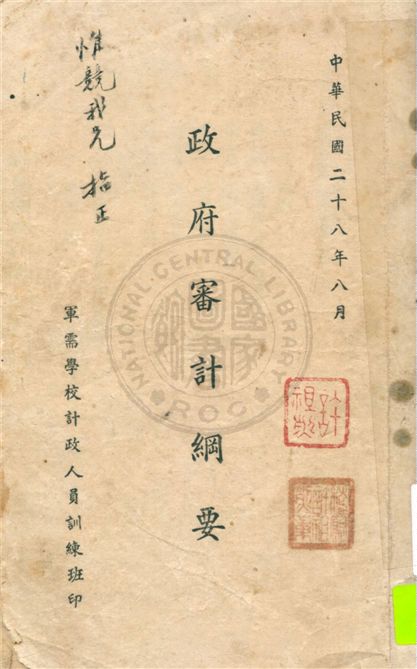 中華民國二十八年八月
政府審計綱要
惟競我兄 指正
軍需學校計政人員訓練班印
NATIONAL CENTRAL LIBRARY
ROC